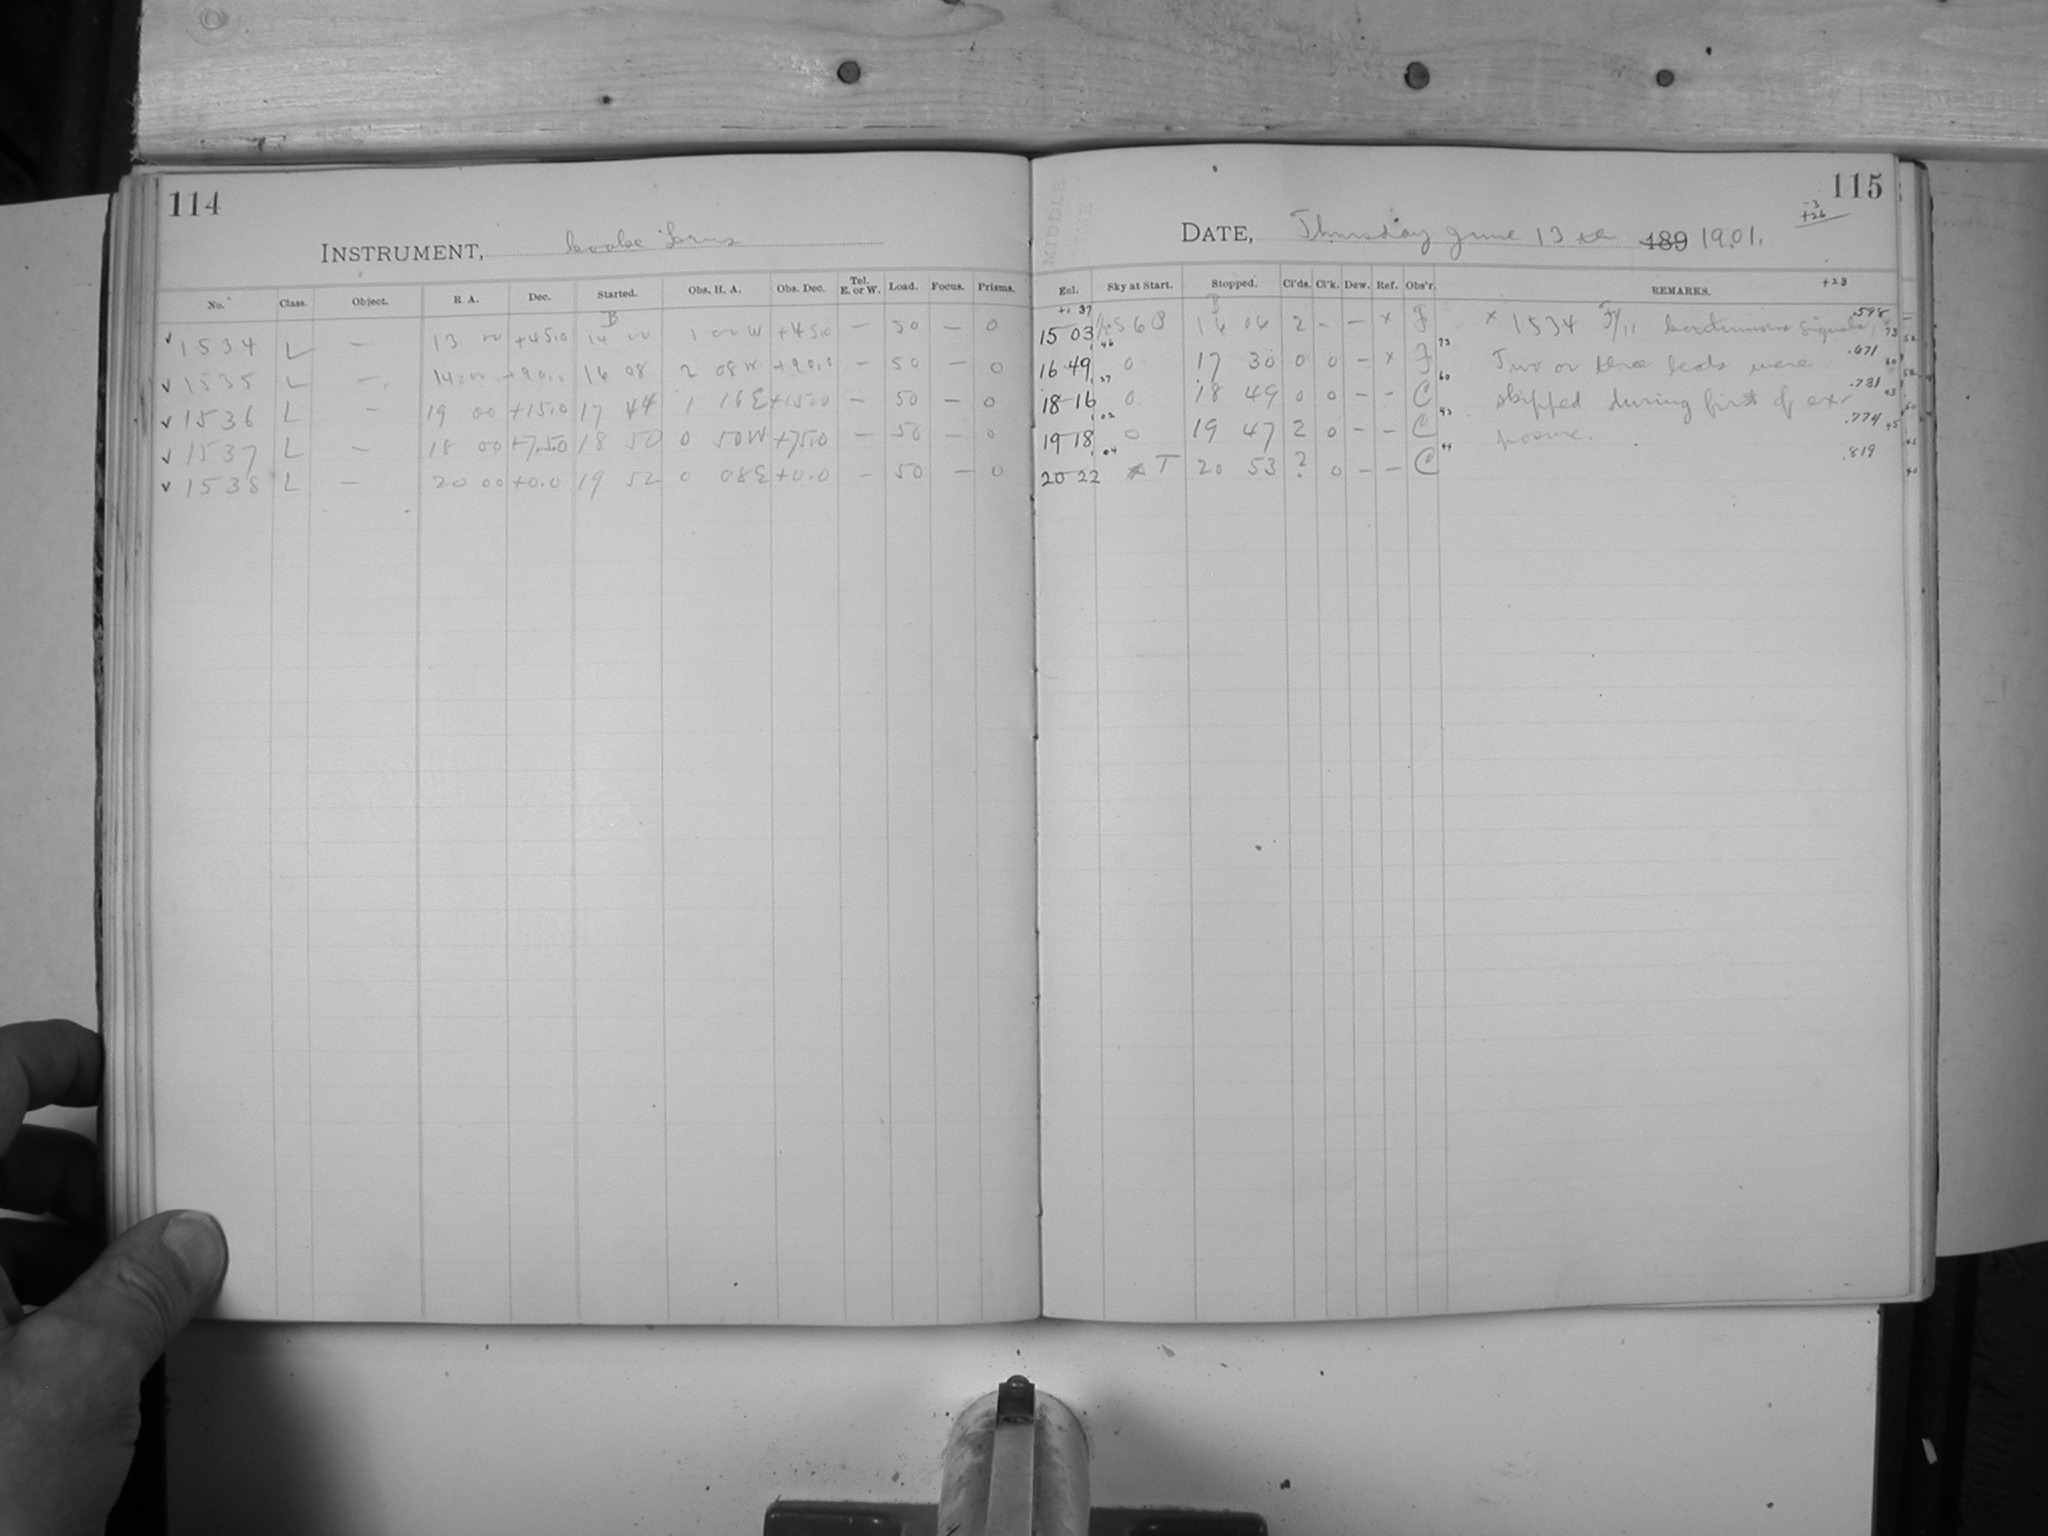 114
INSTRUMENT, Cooke Lens
No. Class. Object. R. A. Dec. Started. Obs. H. A. Obs. Dec. Tel. E. or W. Load. Focus. Prisms.
B
✓ 1534 L — 13 00 +45.0 14 00 1 00 W +45.0 — 50 — 0
✓ 1535 L — 14 00 +90.0 16 08 2 08 W +90.0 — 50 — 0
✓ 1536 L — 19 00 +15.0 17 44 1 16 E +15.0 — 50 — 0
✓ 1537 L — 18 00 +75.0 18 50 0 50 W +75.0 — 50 — 0
✓ 1538 L — 20 00 +0.0 19 52 0 08 E +0.0 — 50 — 0
115
-3
+26
DATE, Thursday June 13 189 1901.
+23
Enl. Sky at Start. Stopped. Cl'ds. Cl'k. Dew. Ref. Obs'r. REMARKS.
15 03 S 6 P 16 06 2 - — x F x 1534 F/11 Continuous signals, .598
16 49 0 17 30 0 0 — x F Two or three beats were .671
18 16 0 18 49 0 0 — — C skipped during first of ex- .731
19 18 0 19 47 2 0 — — C posure. .774
20 22 T 20 53 ? 0 — — C .819